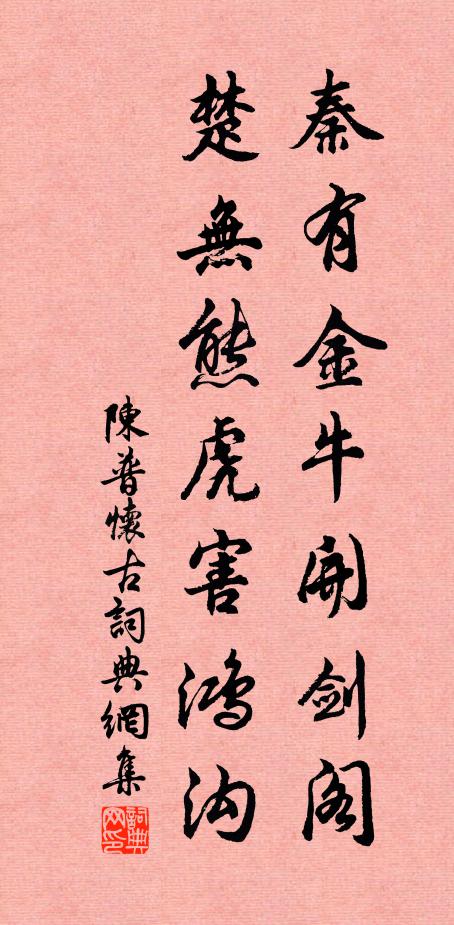 秦有金牛開劍閣
楚無熊虎害鴻沟
陳普懷古詞典網集
詞典网印